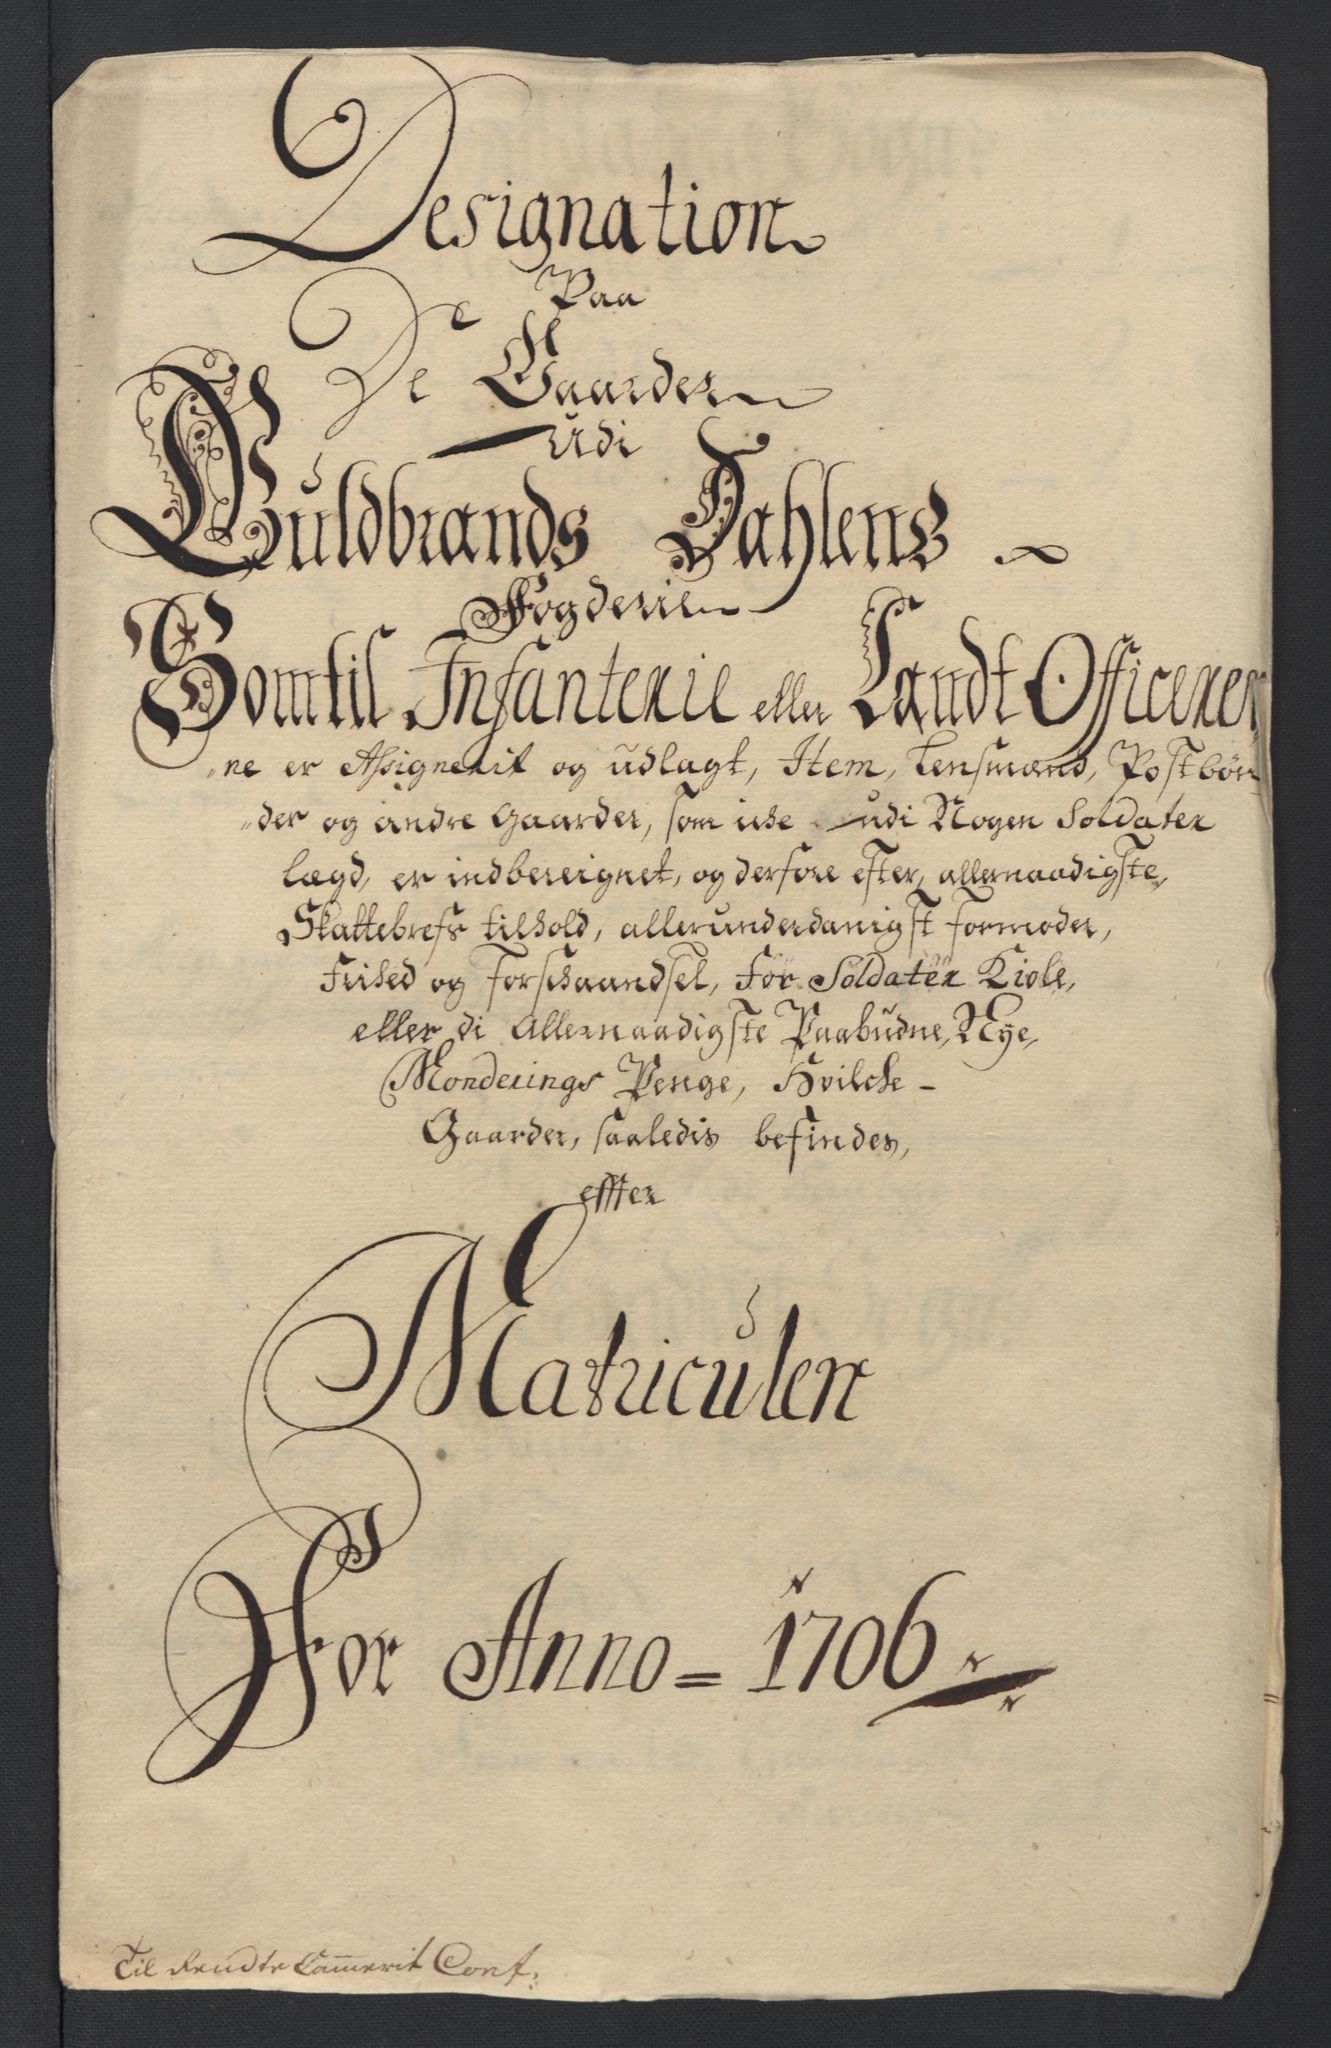 Designation
Paa
De Gaarder
udi
Guldbrands Dahlens
Fogderie
Somtil Infanterie eller Landt Officerer
ne er Assignerit og udlagt, Item, Lensmænd, Postbøn
der og andre Gaarder, som iche udi Nogen Soldater
lægd, er indbereignet, og derfore efter, allernaadigste,
Skattebrefs tilhold, allerunderdanigst formoder,
Frihed og forschaandsel, for Soldater Kiole,
eller di Allernaadigste Paabudne, Nye,
Monderings Penge, Hvilche
Gaarder, saaledis befindes,
effter
Matriculen
For Anno = 1706
Til Rendte Cammerit Conf.